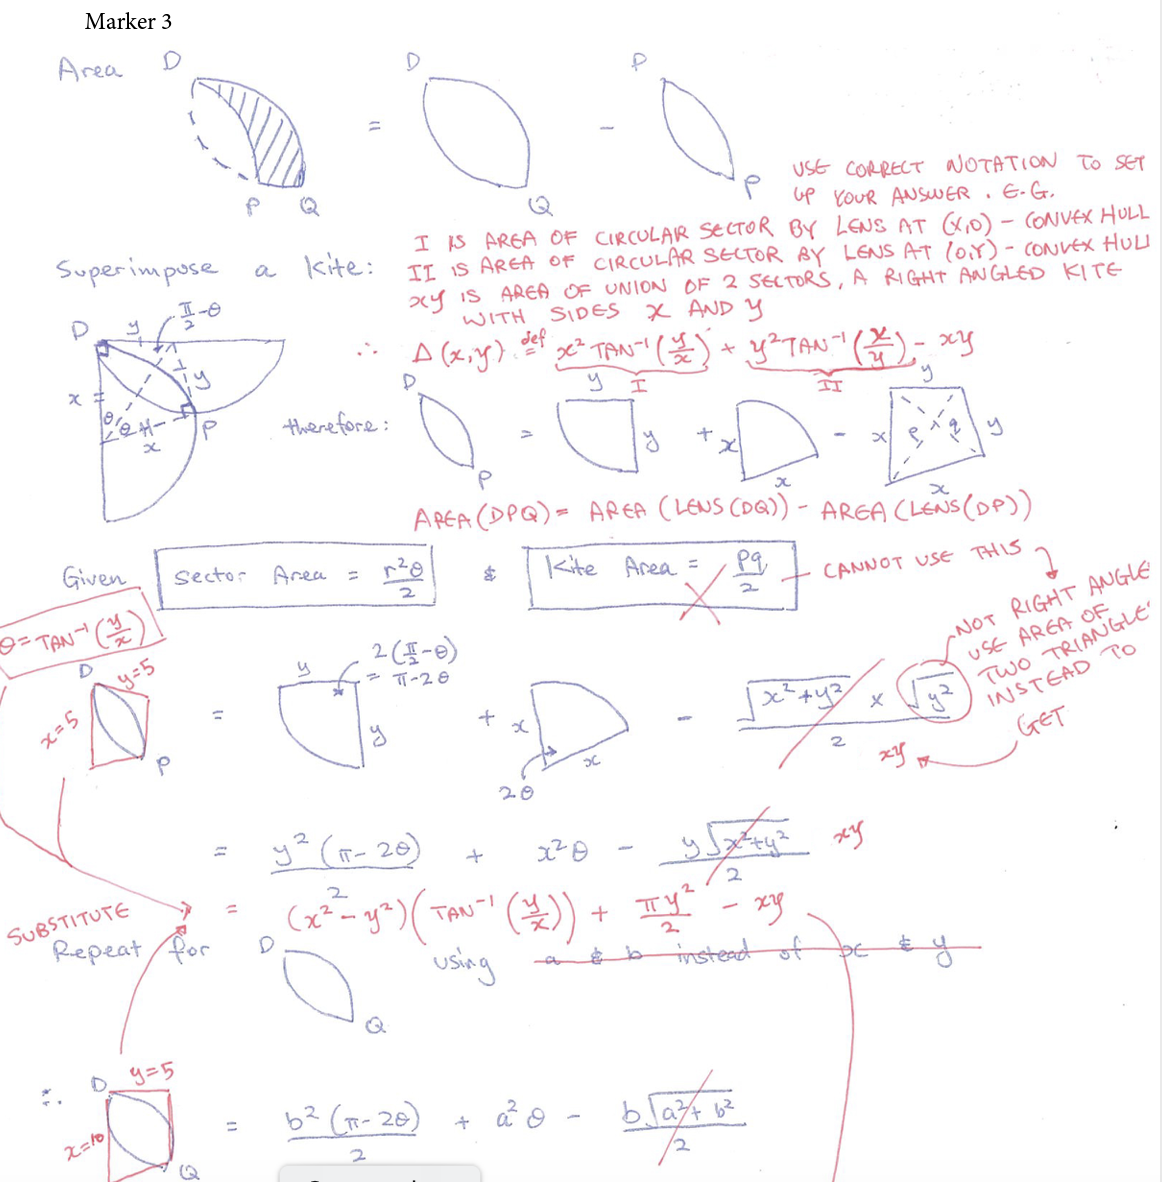 Marker 3
Area D D P
= −
P Q Q P
USE CORRECT NOTATION TO SET
UP YOUR ANSWER. E.G.
I IS AREA OF CIRCULAR SECTOR BY LENS AT (X,0) - CONVEX HULL
Superimpose a kite: II IS AREA OF CIRCULAR SECTOR BY LENS AT (0,Y) - CONVEX HULL
xy IS AREA OF UNION OF 2 SECTORS, A RIGHT ANGLED KITE
WITH SIDES x AND y
π/2-θ
D y
∴ Δ(x,y) def= x² TAN⁻¹(y/x) + y² TAN⁻¹(x/y) - xy
I II
x y
θ θ P
x
therefore: D P = y y + x x − x y p q y x
AREA(DPQ) = AREA (LENS(DQ)) - AREA (LENS(DP))
Given Sector Area = r²θ/2 & Kite Area = pq/2 — CANNOT USE THIS
θ = TAN⁻¹(y/x)
NOT RIGHT ANGLE
USE AREA OF
TWO TRIANGLE
INSTEAD TO
GET
xy
2(π/2-θ)
= π-2θ
D y=5 x=5 P = y y + x x 2θ − √x²+y² × √y² / 2
= y²(π-2θ)/2 + x²θ − y√x²+y²/2 xy
SUBSTITUTE = (x²-y²)(TAN⁻¹(y/x)) + πy²/2 - xy
Repeat for D Q using a & b instead of x & y
∴ D y=5 x=10 Q = b²(π-2θ)/2 + a²θ − b√a²+b²/2